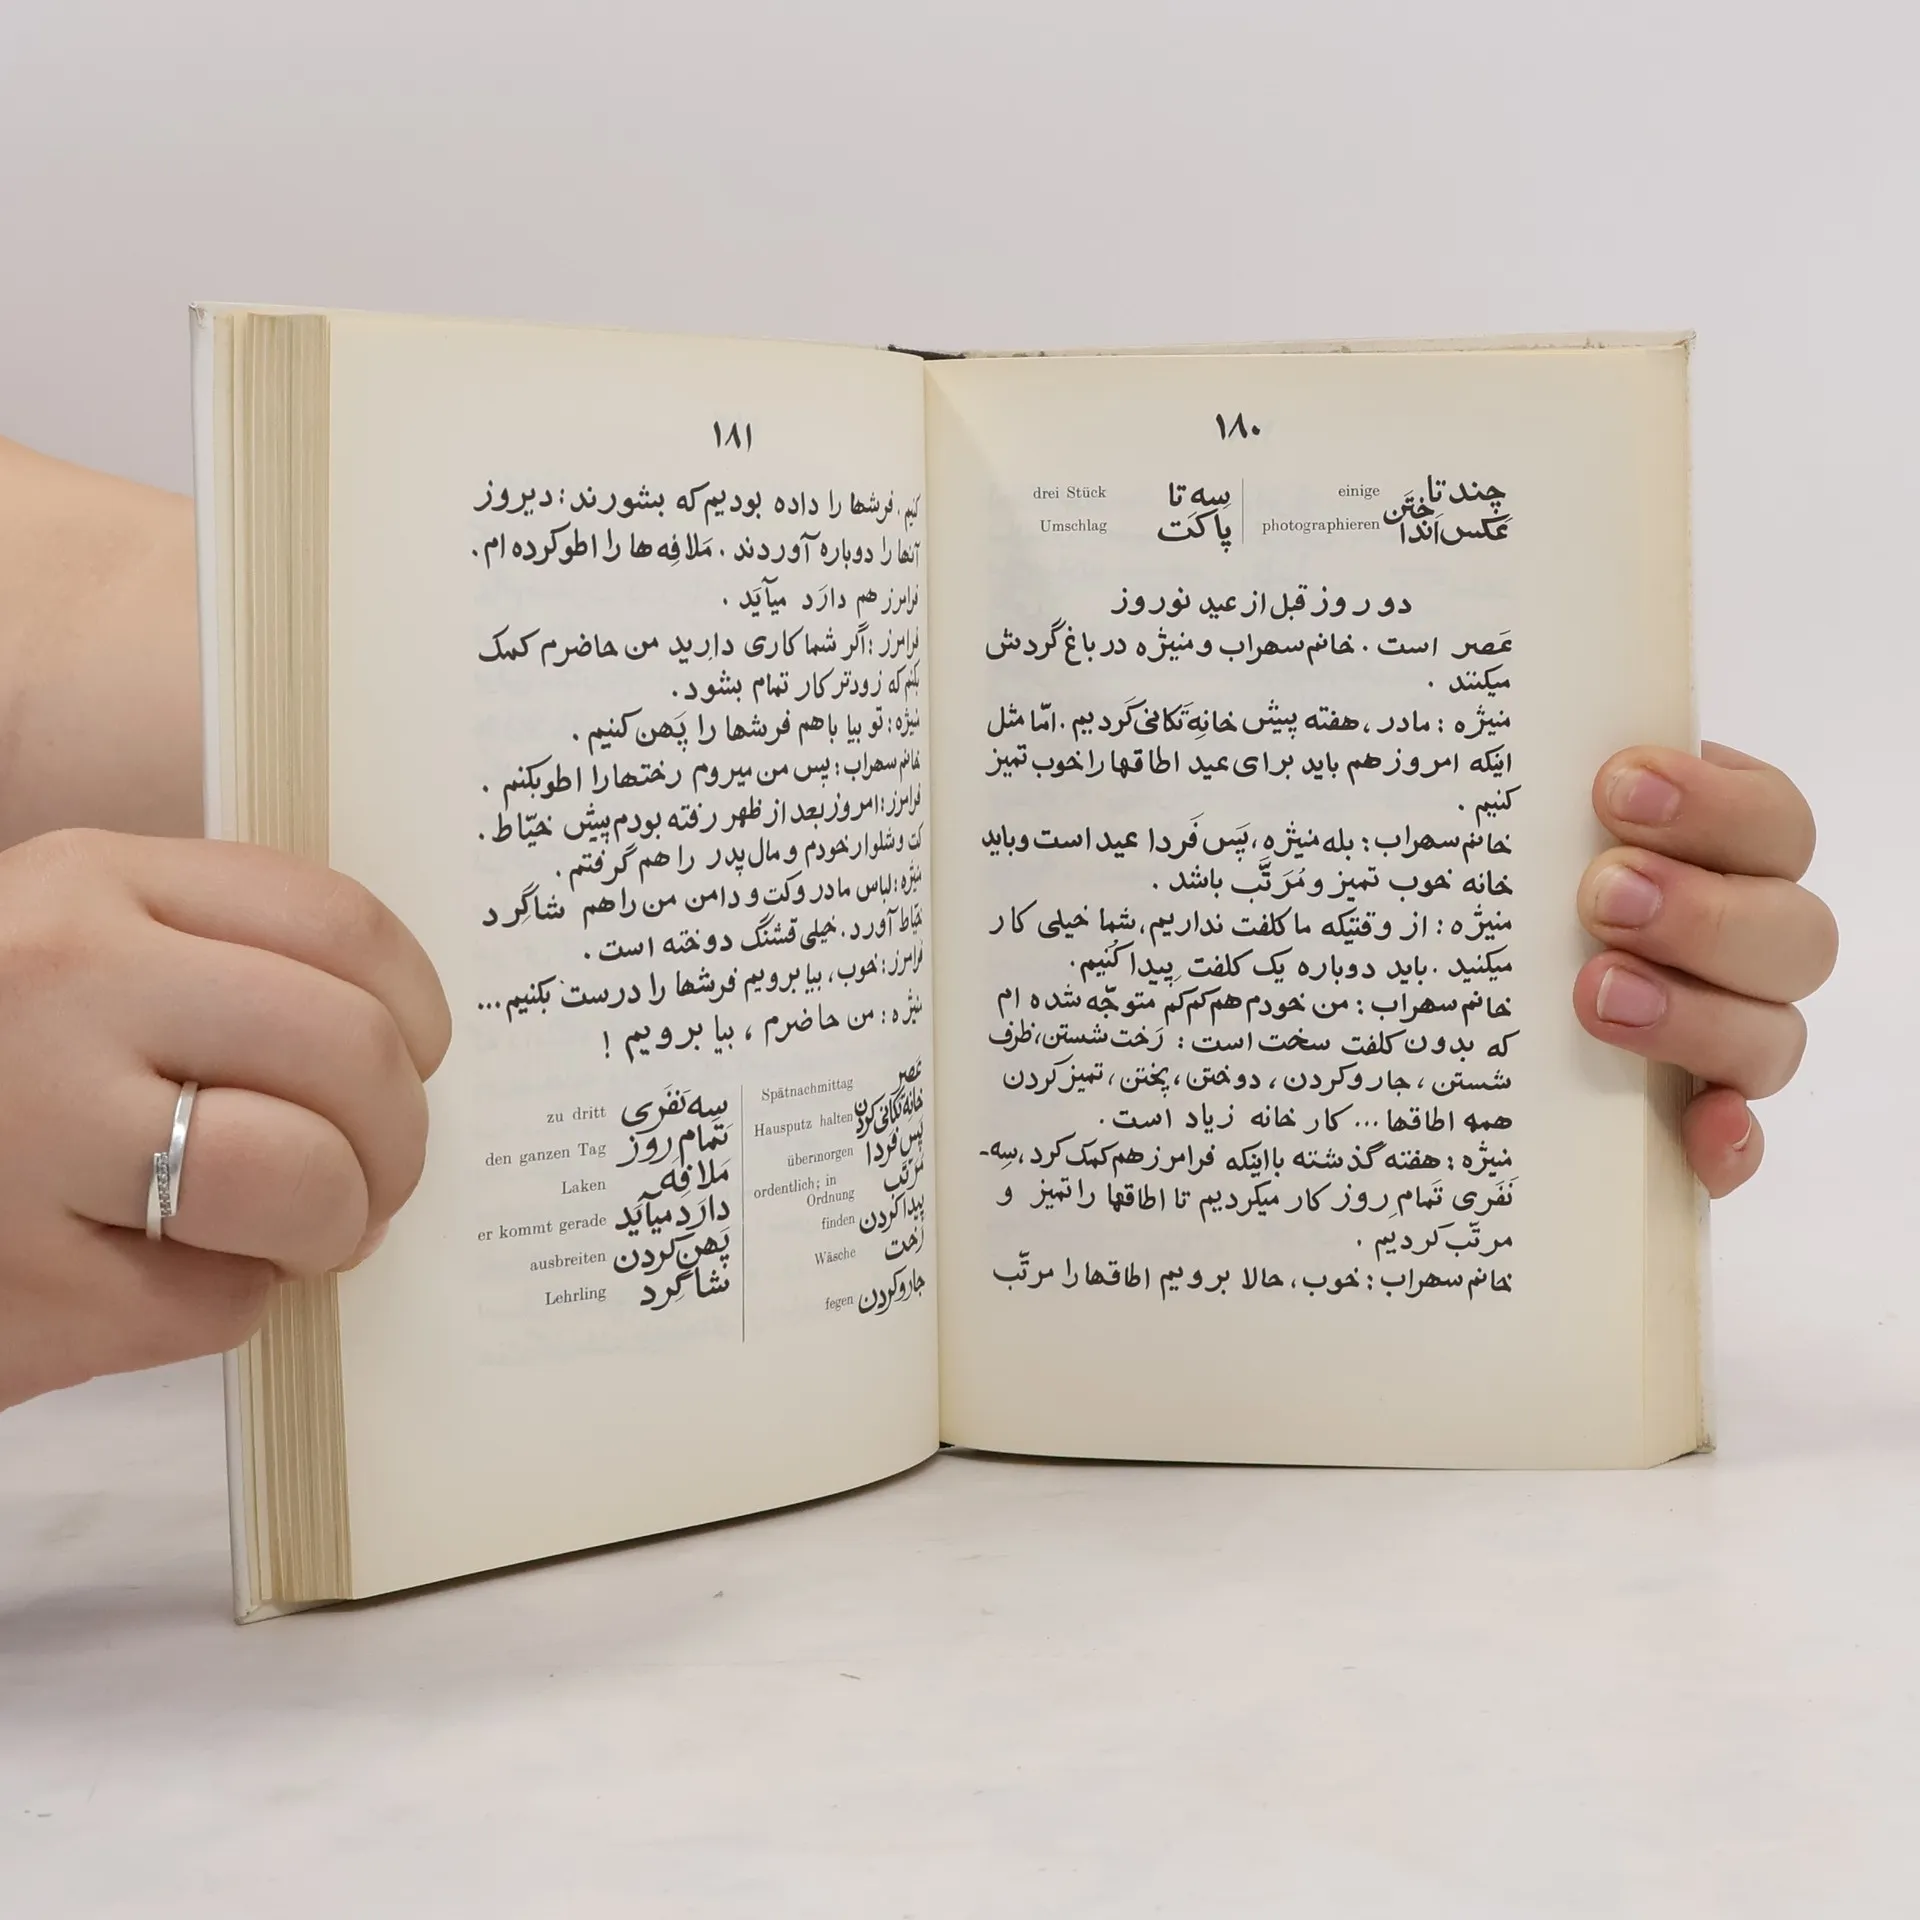 ۱۸۰
چند تا einige
عَکس اَنداختَن photographieren
سِه تا drei Stück
پاکَت Umschlag
دو روز قبل از عید نوروز
عَصر است . خانم سهراب و منیژه در باغ گردش
میکنند .
منیژه : مادر ، هفته پیش خانِه‌تَکانی کَردیم . امّا مثل
اینکه امروز هم باید برای عید اطاقها را خوب تمیز
کنیم .
خانم سهراب : بله منیژه ، پَس فَردا عید است و باید
خانه خوب تمیز و مُرَتَّب باشد .
منیژه : از وقتیکه ما کلفت نداریم ، شما خیلی کار
میکنید . باید دوباره یک کلفت پِیدا کُنیم .
خانم سهراب : من خودم هم کم کم متوجّه شده ام
که بدون کلفت سخت است : رَخت شستن ، ظرف
شستن ، جارو کردن ، دوختن ، پختن ، تمیز کردن
همه اطاقها ... کار خانه زیاد است .
منیژه : هفته گذشته با اینکه فرامرز هم کمک کرد ، سِه‌-
نَفَری تَمامِ روز کار میکردیم تا اطاقها را تمیز و
مرتّب کردیم .
خانم سهراب : خوب ، حالا برویم اطاقها را مرتّب
۱۸۱
کنیم . فرشها را داده بودیم که بشورند : دیروز
آنها را دوباره آوردند . مَلافِه ها را اطو کرده ام .
فرامرز هم دارَد میآیَد .
فرامرز : اگر شما کاری دارید من حاضرم کمک
بکنم که زودتر کار تمام بشود .
منیژه : تو بیا با هم فرشها را پَهن کنیم .
خانم سهراب : پس من میروم رختها را اطو بکنم .
فرامرز : امروز بعد از ظهر رفته بودم پیش خیّاط .
کت و شلوار خودم و مال پدر را هم گرفتم .
منیژه : لباس مادر و کت و دامن من را هم شاگِرد
خیّاط آورد . خیلی قشنگ دوخته است .
فرامرز : خوب ، بیا برویم فرشها را درست بکنیم ...
منیژه : من حاضرم ، بیا برویم !
عَصر Spätnachmittag
خانِه‌تَکانی کردن Hausputz halten
پَس فَردا übermorgen
مُرَتَّب ordentlich; in
Ordnung
پیدا کردن finden
رَخت Wäsche
جارو کردن fegen
سِه نَفَری zu dritt
تَمامِ روز den ganzen Tag
مَلافِه Laken
دارَد میآیَد er kommt gerade
پَهن کردن ausbreiten
شاگِرد Lehrling